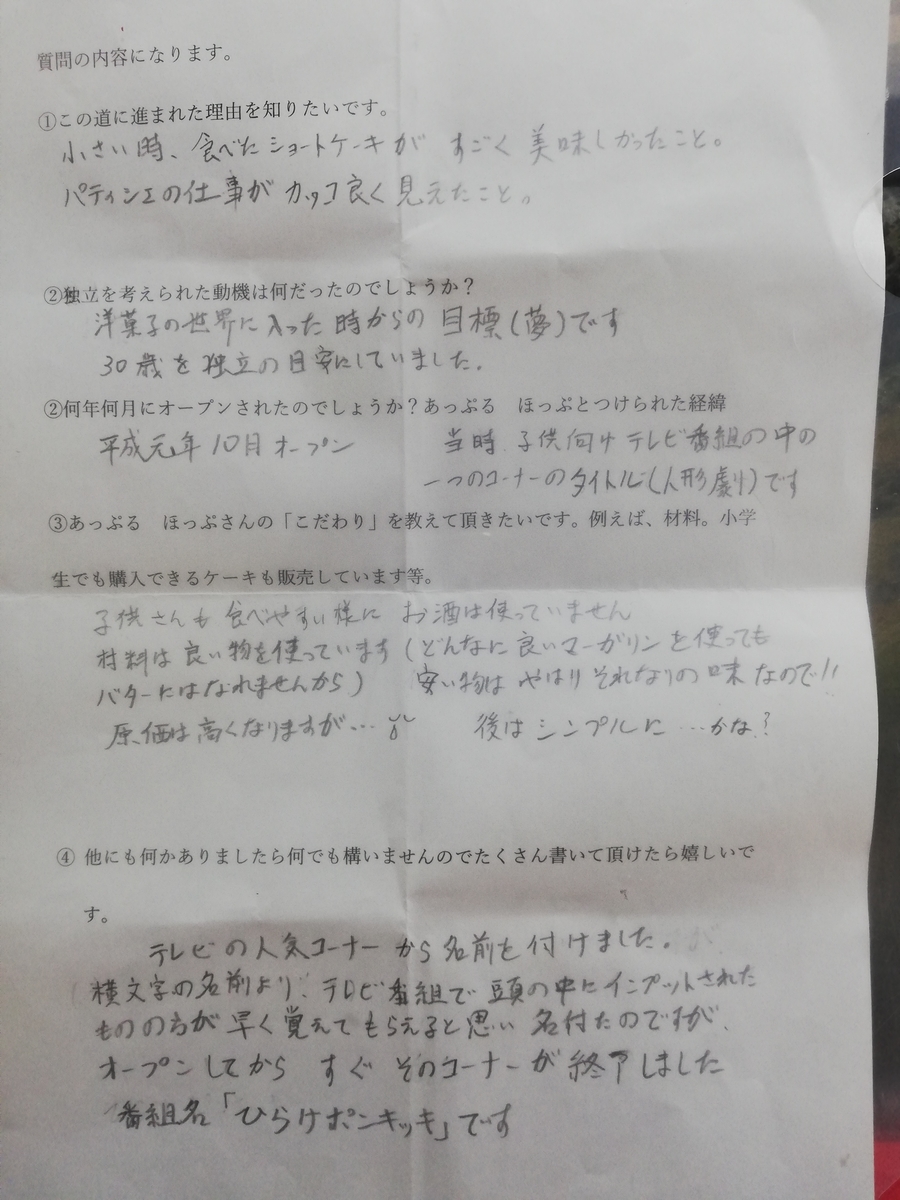 質問の内容になります。
①この道に進まれた理由を知りたいです。
小さい時、食べたショートケーキが すごく 美味しかったこと。
パティシエの仕事が カッコ良く 見えたこと。
②独立を考えられた動機は何だったのでしょうか？
洋菓子の世界に 入った 時からの 目標(夢)です
30歳を 独立の目安にしていました。
②何年何月にオープンされたのでしょうか？あっぷる　ほっぷとつけられた経緯
平成元年 10月 オープン 当時 子供向け テレビ番組の 中の
一つのコーナーのタイトル(人形劇)です
③あっぷる　ほっぷさんの「こだわり」を教えて頂きたいです。例えば、材料。小学
生でも購入できるケーキも販売しています等。
子供さんも 食べやすい様に お酒は使っていません
材料は 良い物を使っています (どんなに良いマーガリンを使っても
バターにはなれませんから) 安い物は やはり それなりの 味 なので!!
原価は高くなりますが… 後は シンプルに …かな?
④ 他にも何かありましたら何でも構いませんのでたくさん書いて頂けたら嬉しいで
す。
テレビの人気コーナー から 名前を 付けました。
横文字の名前より、テレビ番組で 頭の中にインプットされた
ものの方が 早く 覚えてもらえると思い 名付たのですが、
オープンしてから すぐ そのコーナーが 終了しました
番組名「ひらけポンキッキ」です